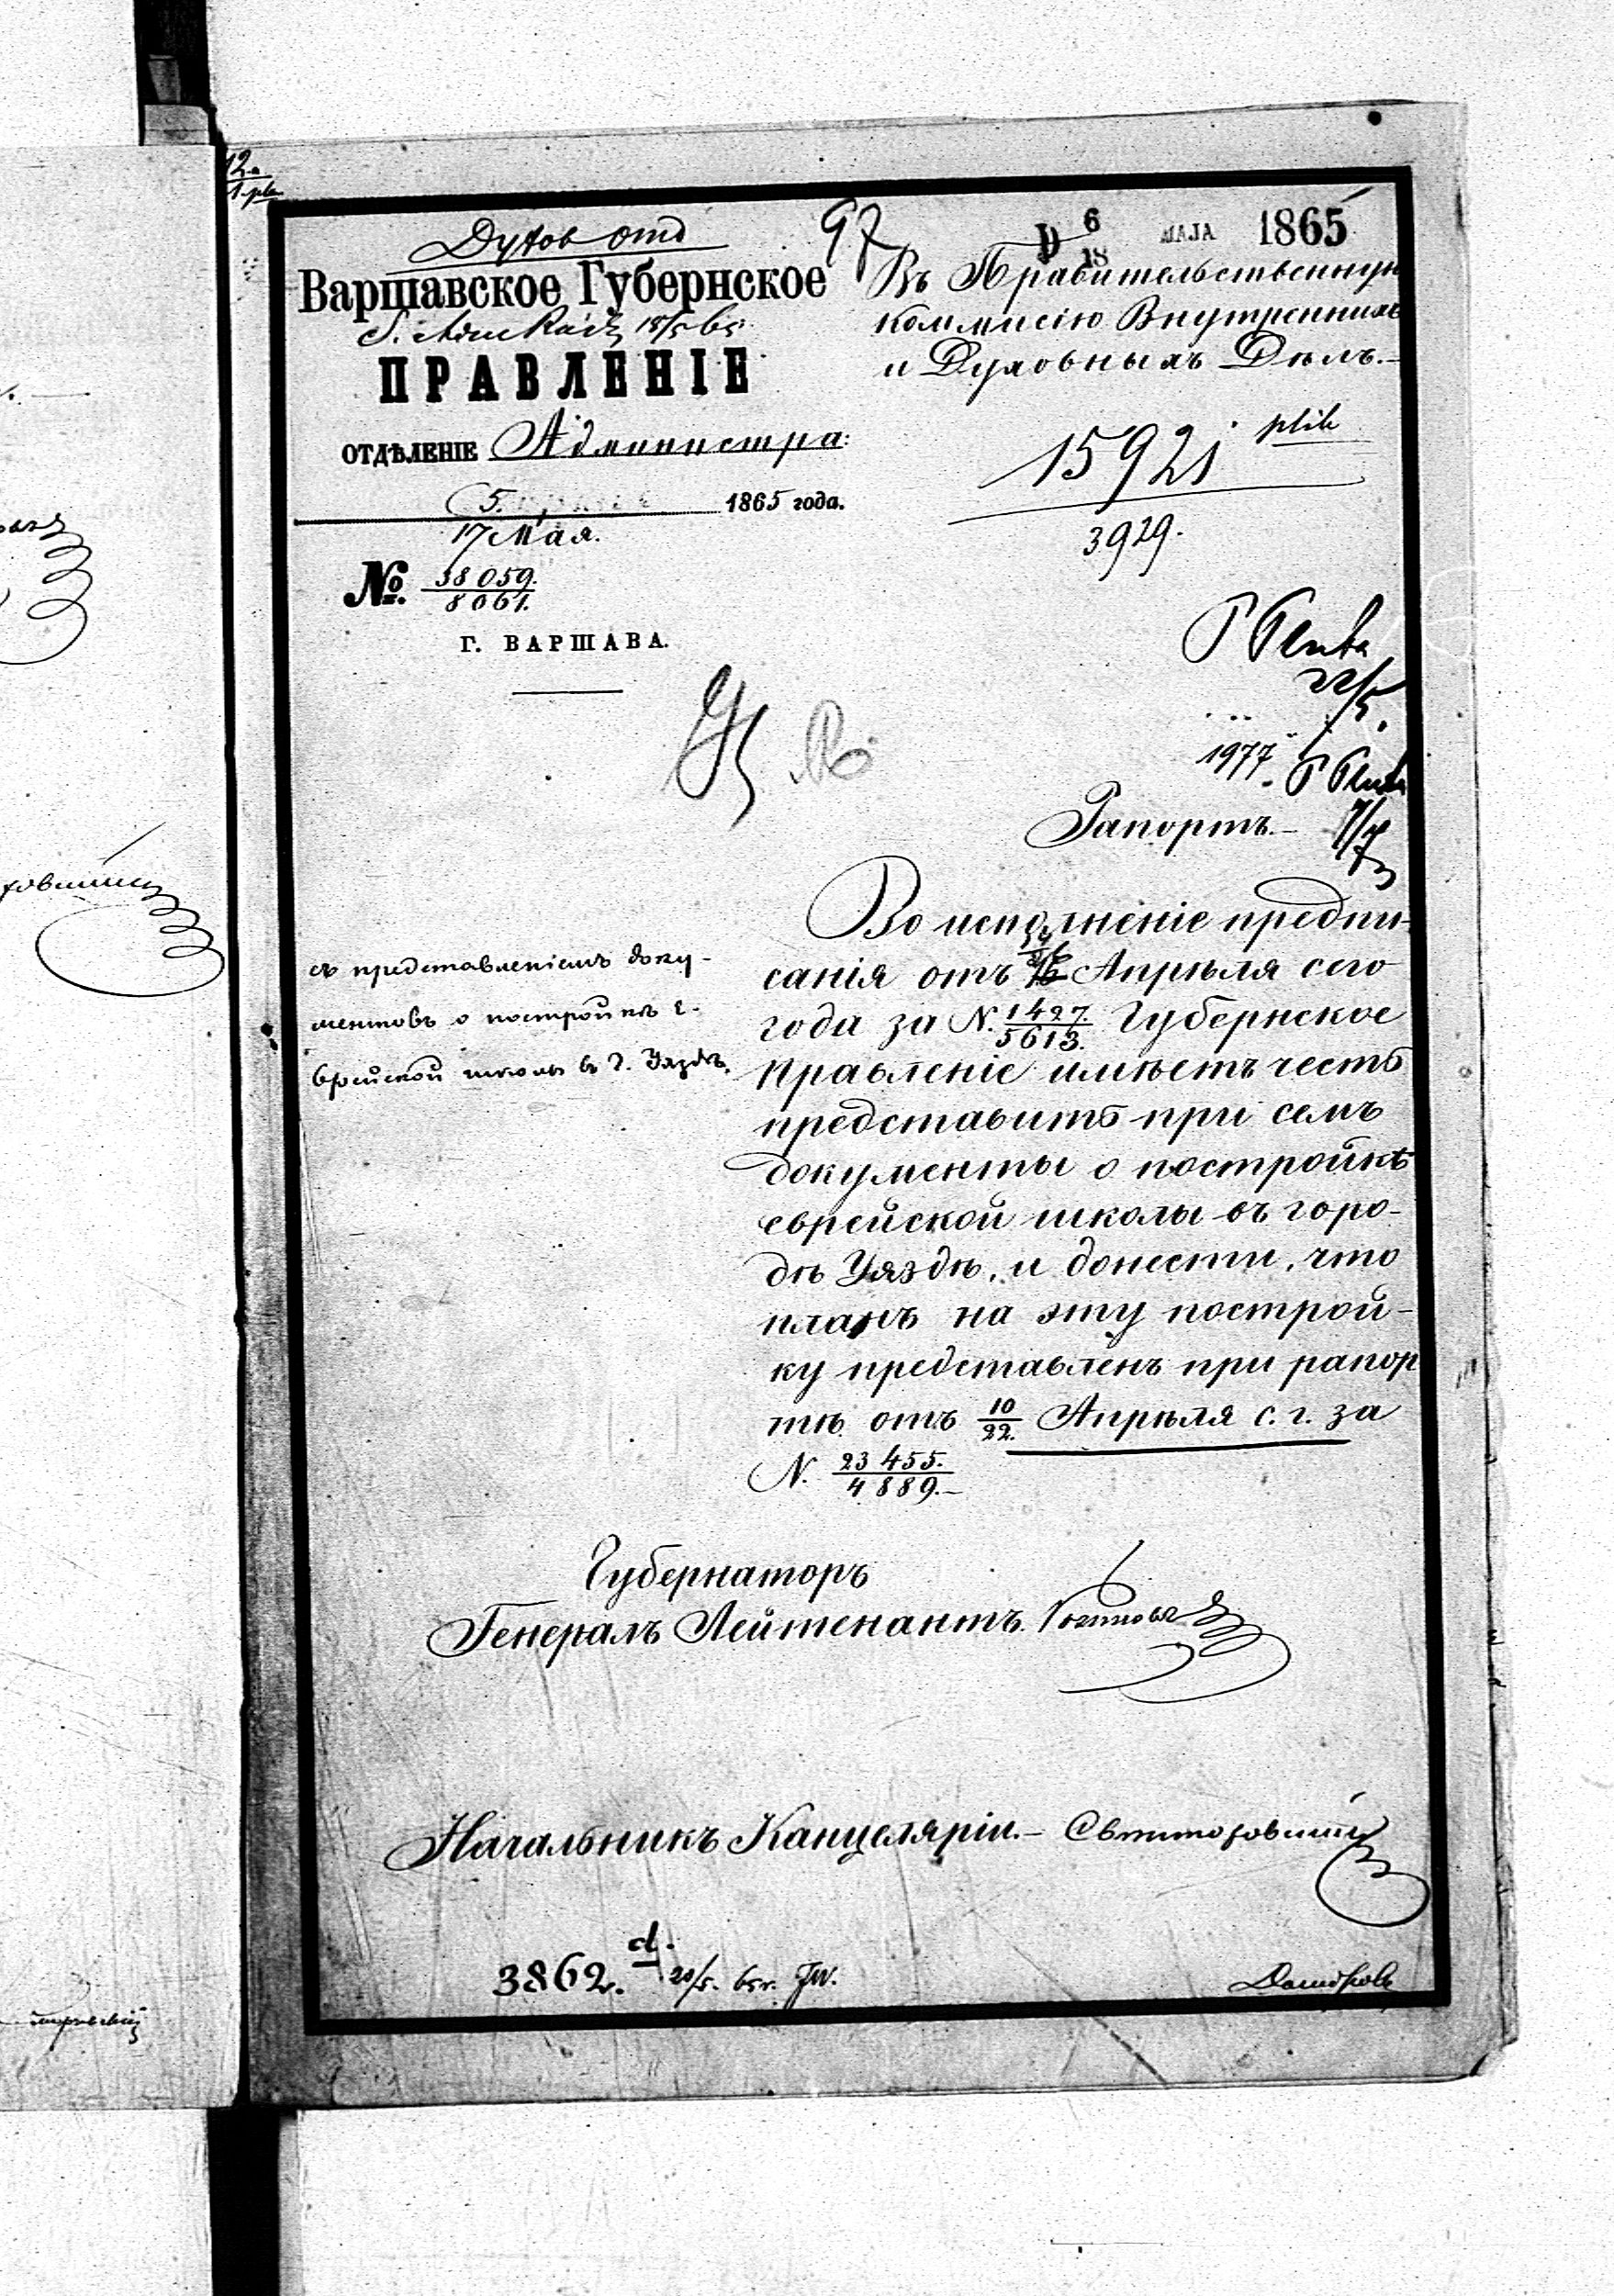 Духов отд
97
D 6/18 MAJA 1865
Варшавское Губернское
ПРАВЛЕНІЕ
ОТДѢЛЕНІЕ Администра:
5. 1865 года.
17 Мая.
№ 38059./8061.
Г. ВАРШАВА.
Въ Правительственную
Коммисію Внутреннихъ
и Духовныхъ Дѣлъ.—
15921 plik
3929.
22/5.
1977
Рапортъ.—
съ представленіемъ доку-
ментовъ о постройкѣ е-
врейской школы въ г. Уяздѣ.
Во исполненіе предпи-
санія отъ Апрѣля сего
года за N. 1427./5613. Губернское
Правленіе имѣетъ честь
представить при семъ
документы о постройкѣ
еврейской школы въ горо-
дѣ Уяздѣ, и донести, что
планъ на эту построй-
ку представленъ при рапор
тѣ отъ 10/22. Апрѣля с. г. за
N. 23455./4889.—
Губернаторъ
Генералъ Лейтенантъ.
Начальникъ Канцеляріи.—
3862. d. 20/5. 65 r.